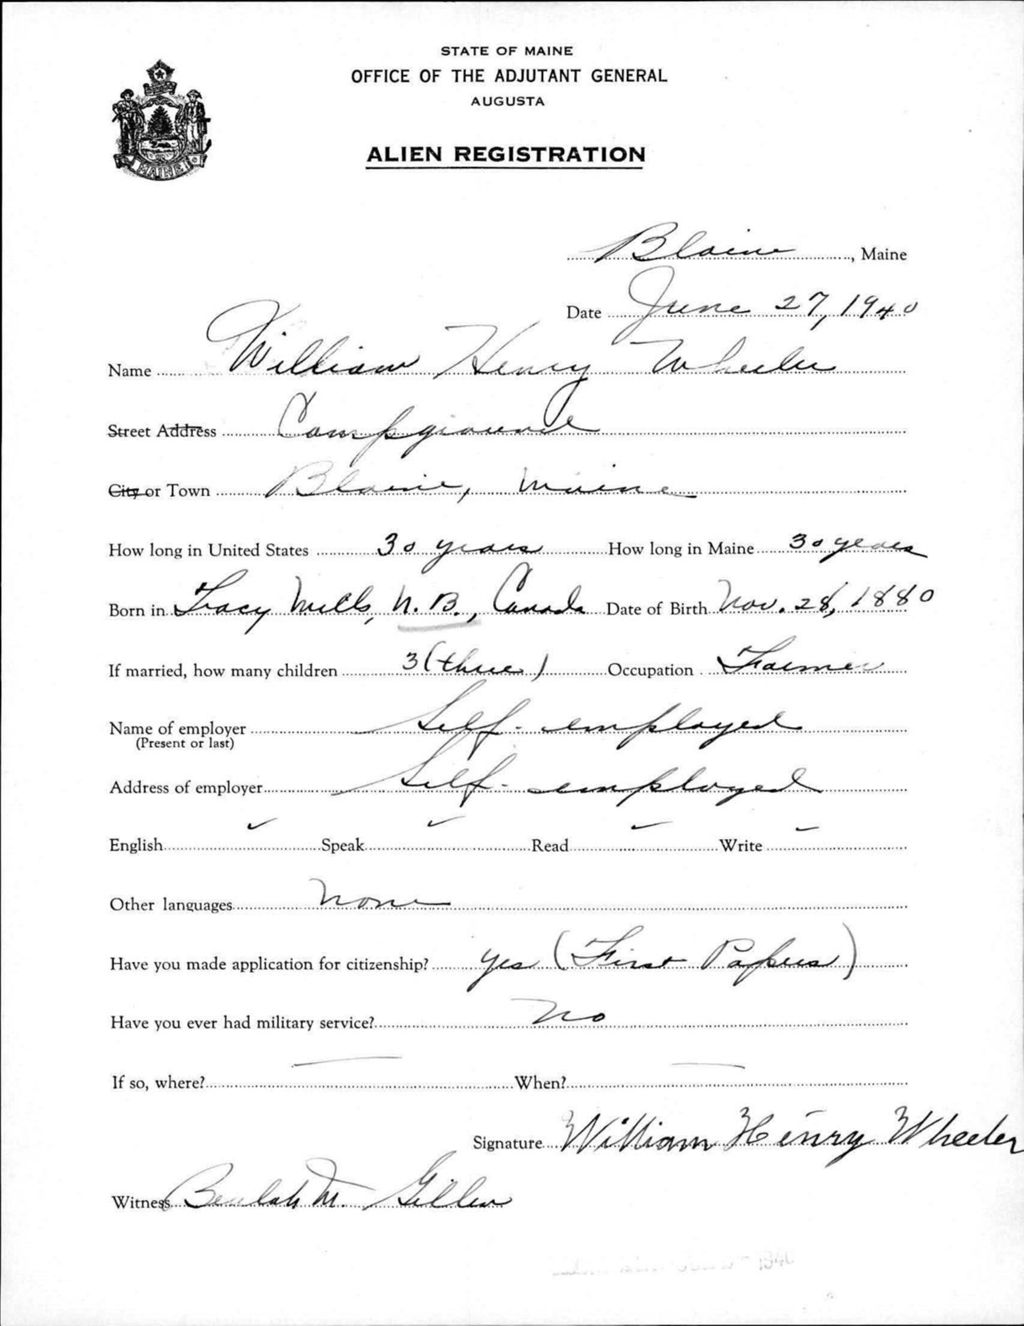 STATE OF MAINE
OFFICE OF THE ADJUTANT GENERAL
AUGUSTA
ALIEN REGISTRATION
MAINE
Blaine, Maine
Date June 27, 1940
Name William Henry Wheeler
Street Address Campground
City or Town Blaine, Maine
How long in United States 30 years How long in Maine 30 years
Born in Tracy Mills, N.B., Canada Date of Birth Nov. 28, 1880
If married, how many children 3 (three) Occupation Farmer
Name of employer Self-employed
(Present or last)
Address of employer Self-employed
English ✓ Speak ✓ Read ✓ Write ✓
Other languages none
Have you made application for citizenship? yes (First Papers)
Have you ever had military service? no
If so, where? — When? —
Signature William Henry Wheeler
Witness Beulah M.